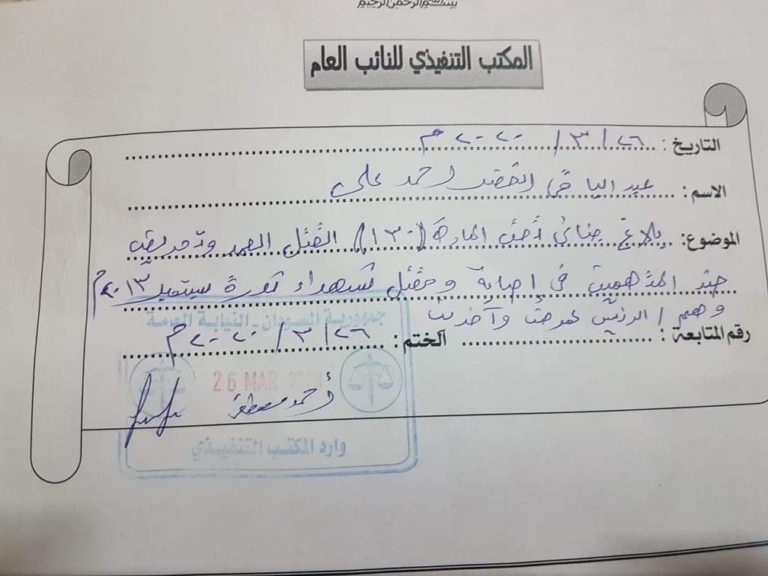 بسم الله الرحمن الرحيم
المكتب التنفيذي للنائب العام
التاريخ : ٢٦ / ٣ / ٢٠٢٠ م
الاسم : عبد الباقي الخضر احمد علي
الموضوع: بلاغ جنائي تحت المادة (١٣٠) القتل العمد
ضد المتهمين في اصابة وقتل شهداء ثورة سبتمبر ٢٠١٣م
وهم / الرئيس عوض وآخرين
رقم المتابعة : الختم : ٢٦ / ٣ / ٢٠٢٠ م
جمهورية السودان - النيابة العامة
26 MAR
أحمد مصطفى
وارد المكتب التنفيذي